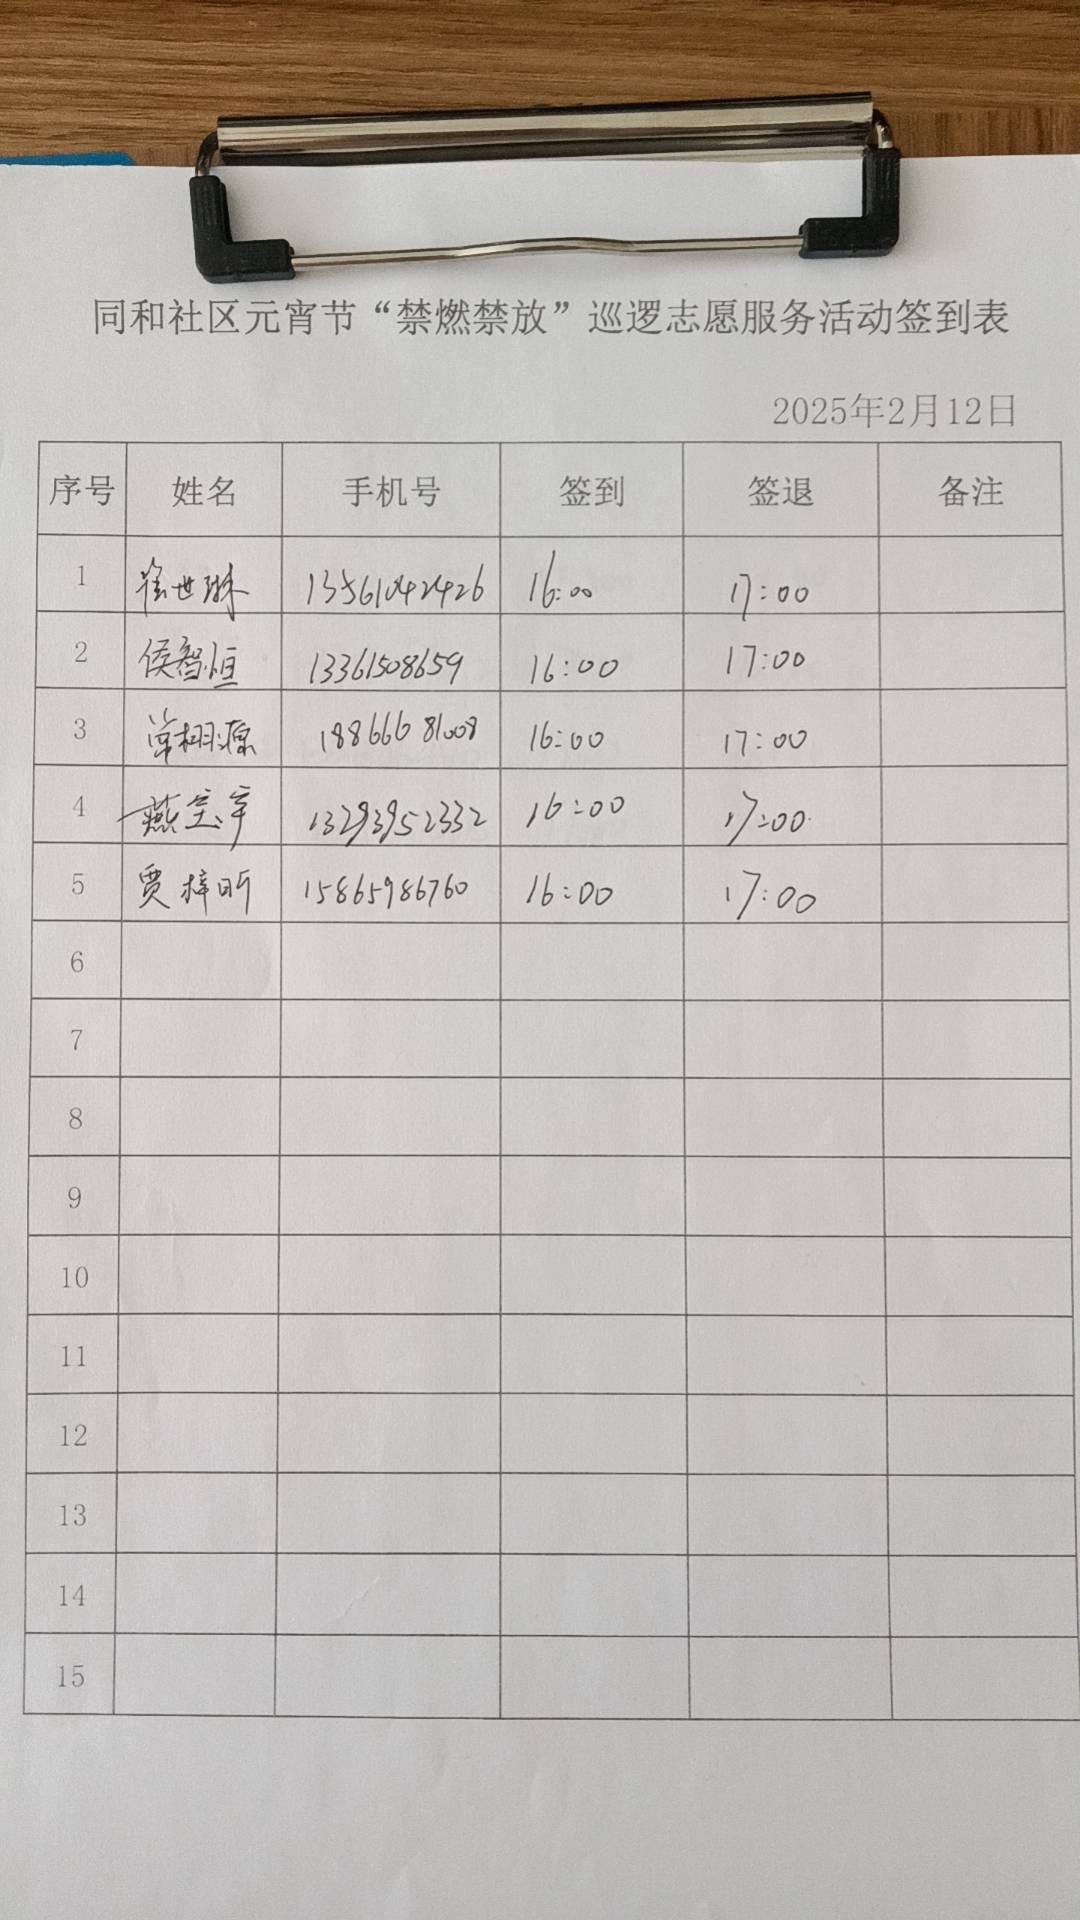 同和社区元宵节“禁燃禁放”巡逻志愿服务活动签到表
2025年2月12日
序号 姓名 手机号 签到 签退 备注
1 世琳 13561042426 16:00 17:00
2 侯智恒 13361508659 16:00 17:00
3 栩源 18866681008 16:00 17:00
4 燕宝宇 13293952332 16:00 17:00
5 贾梓昕 15865986760 16:00 17:00
6
7
8
9
10
11
12
13
14
15